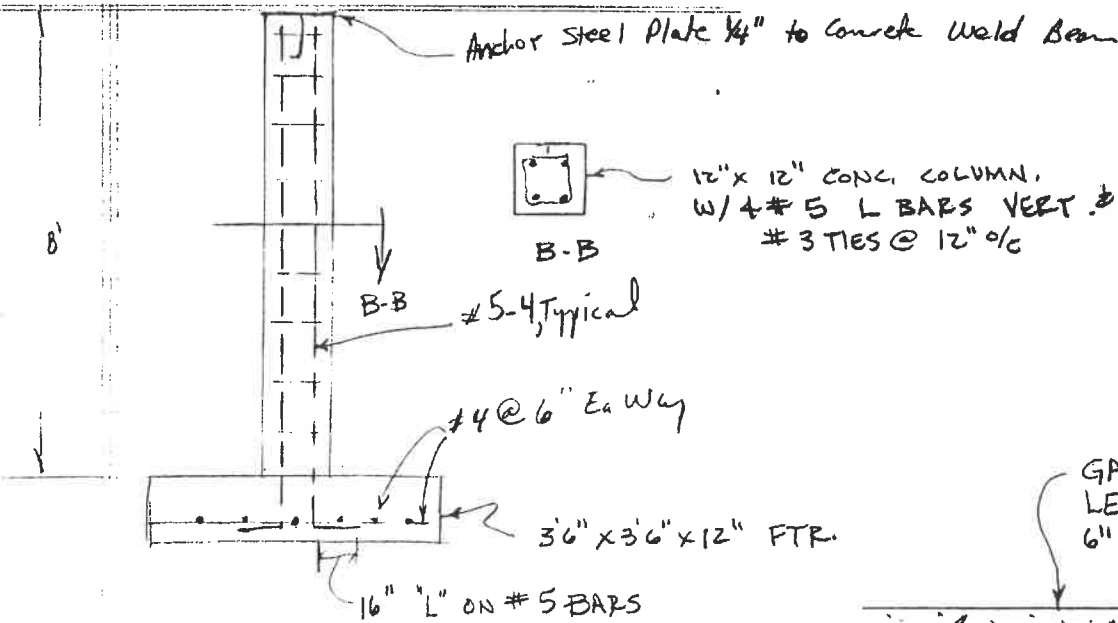 Anchor Steel Plate 1/4" to Concrete Weld Beam
12" x 12" CONC. COLUMN.
W/ 4 # 5 L BARS VERT. &
# 3 TIES @ 12" o/c
B-B
8'
B-B
#5-4, Typical
#4 @ 6" Ea Way
3'6" x 3'6" x 12" FTR.
16" "L" ON # 5 BARS
LE
6"